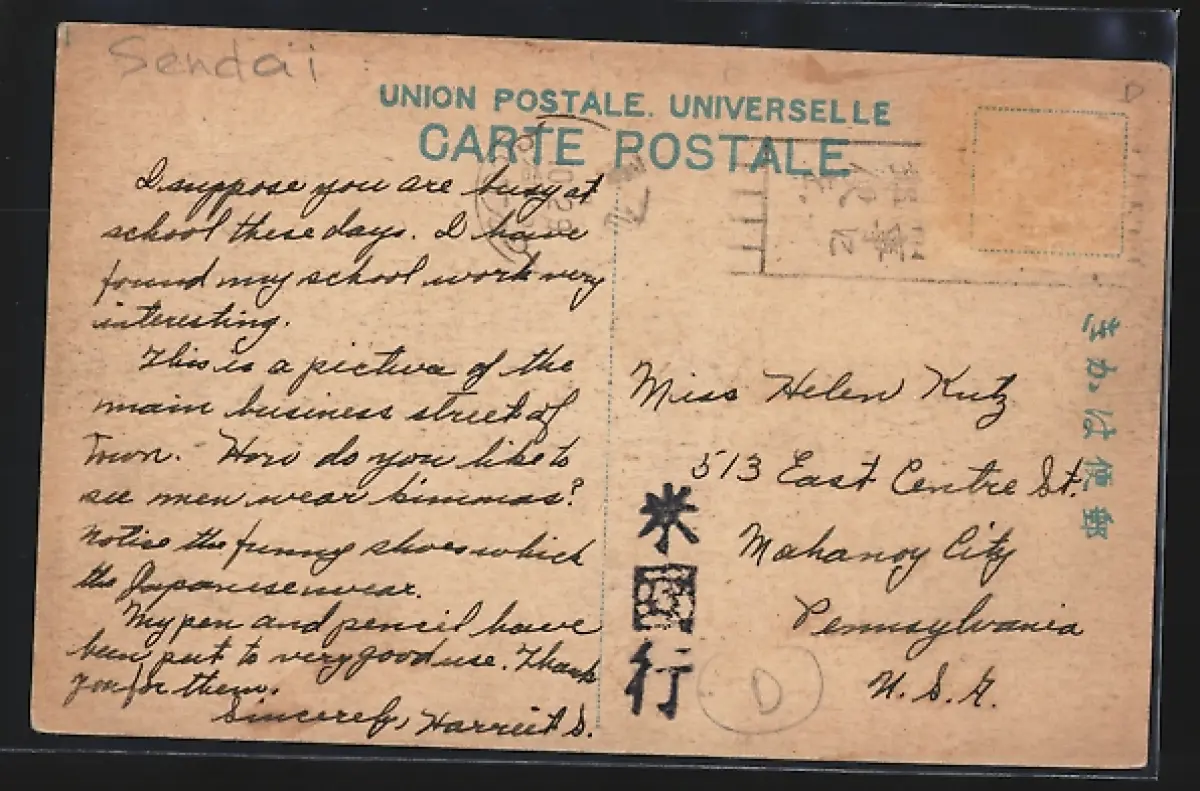 Sendai
D
UNION POSTALE. UNIVERSELLE
CARTE POSTALE
I suppose you are busy at
school these days. I have
found my school work very
interesting.
This is a picture of the
main business street of
Town. How do you like to
see men wear kimmas?
Notice the funny shoes which
the Japanese wear.
My pen and pencil have
been put to very good use. Thank
you for them.
Sincerely, Harriet S.
Miss Helen Kutz
513 East Centre St.
Mahanoy City
Pennsylvania
U. S. A.
米國行
D
きかは便郵